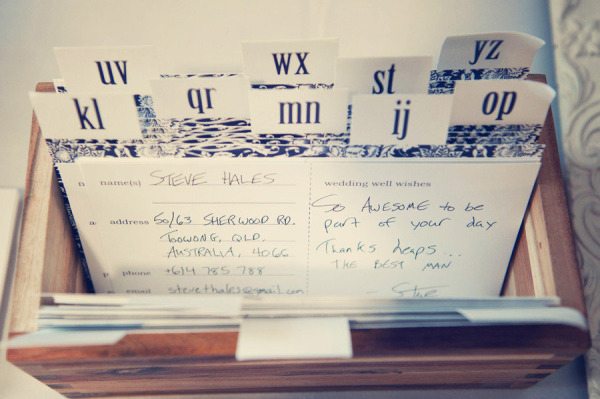 uv
wx
st
yz
kl
qr
mn
ij
op
n name(s) STEVE HALES
a address 50/63 SHERWOOD RD.
TOOWONG, QLD.
AUSTRALIA, 4066
p phone +614 785 788
email stevethales@gmail.com
wedding well wishes
So AWESOME to be
part of your day
Thanks heaps...
THE BEST MAN
- Steve